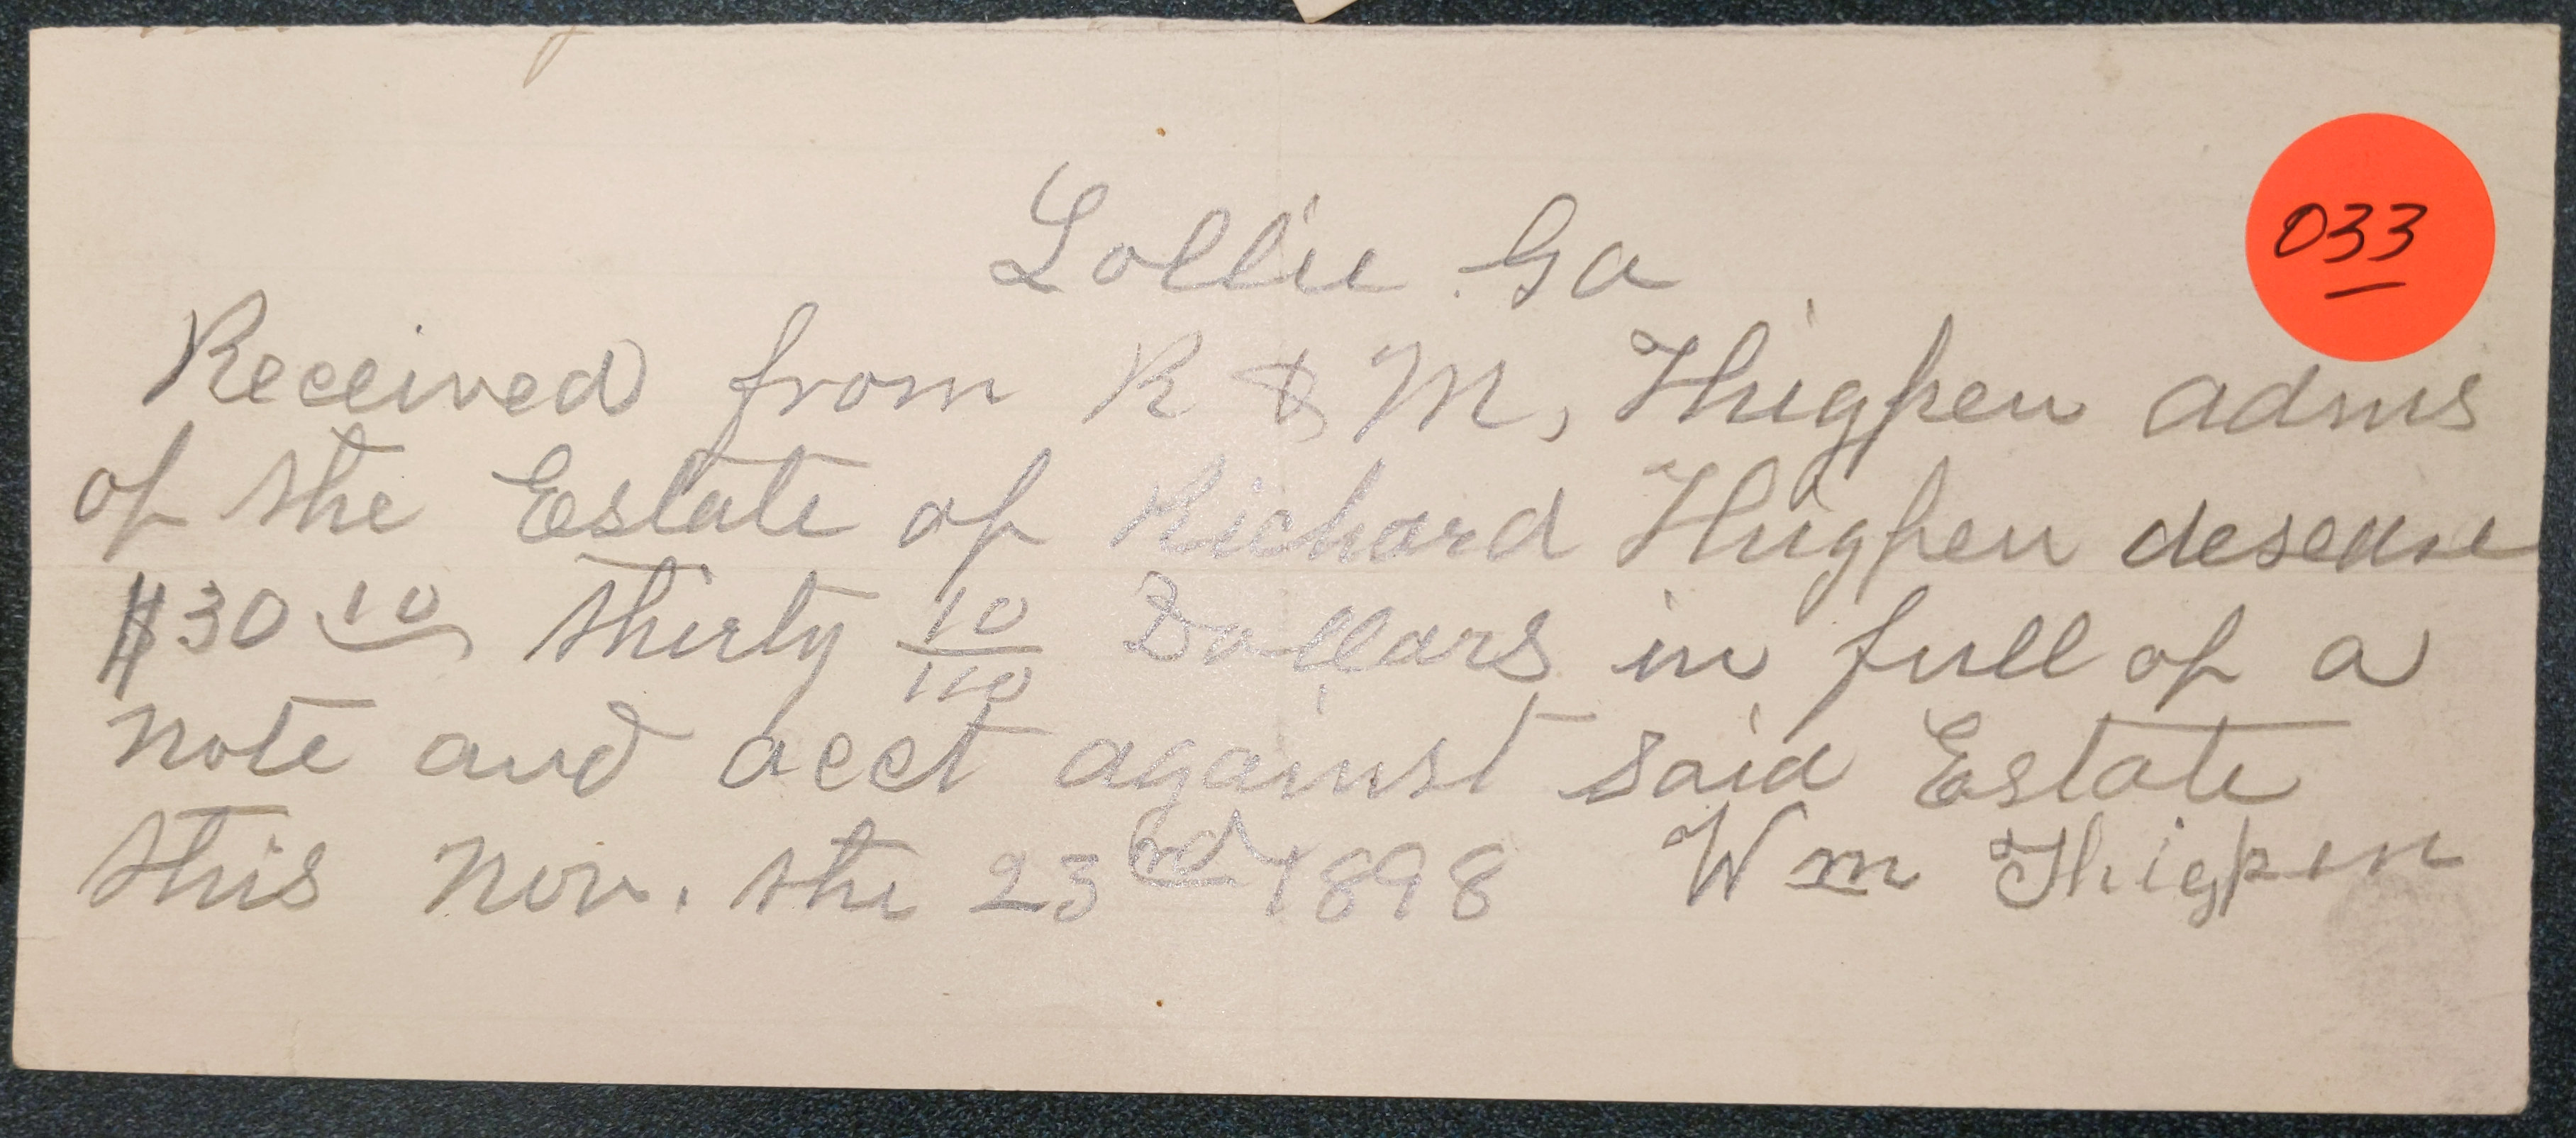 Lollie Ga
033
Received from R & M, Thigpen adms
of the Estate of Richard Thigpen desease
$30 10 thirty 10/100 Dollars in full of a
note and acct against said Estate
this Nov. the 23rd 1898 Wm Thigpen